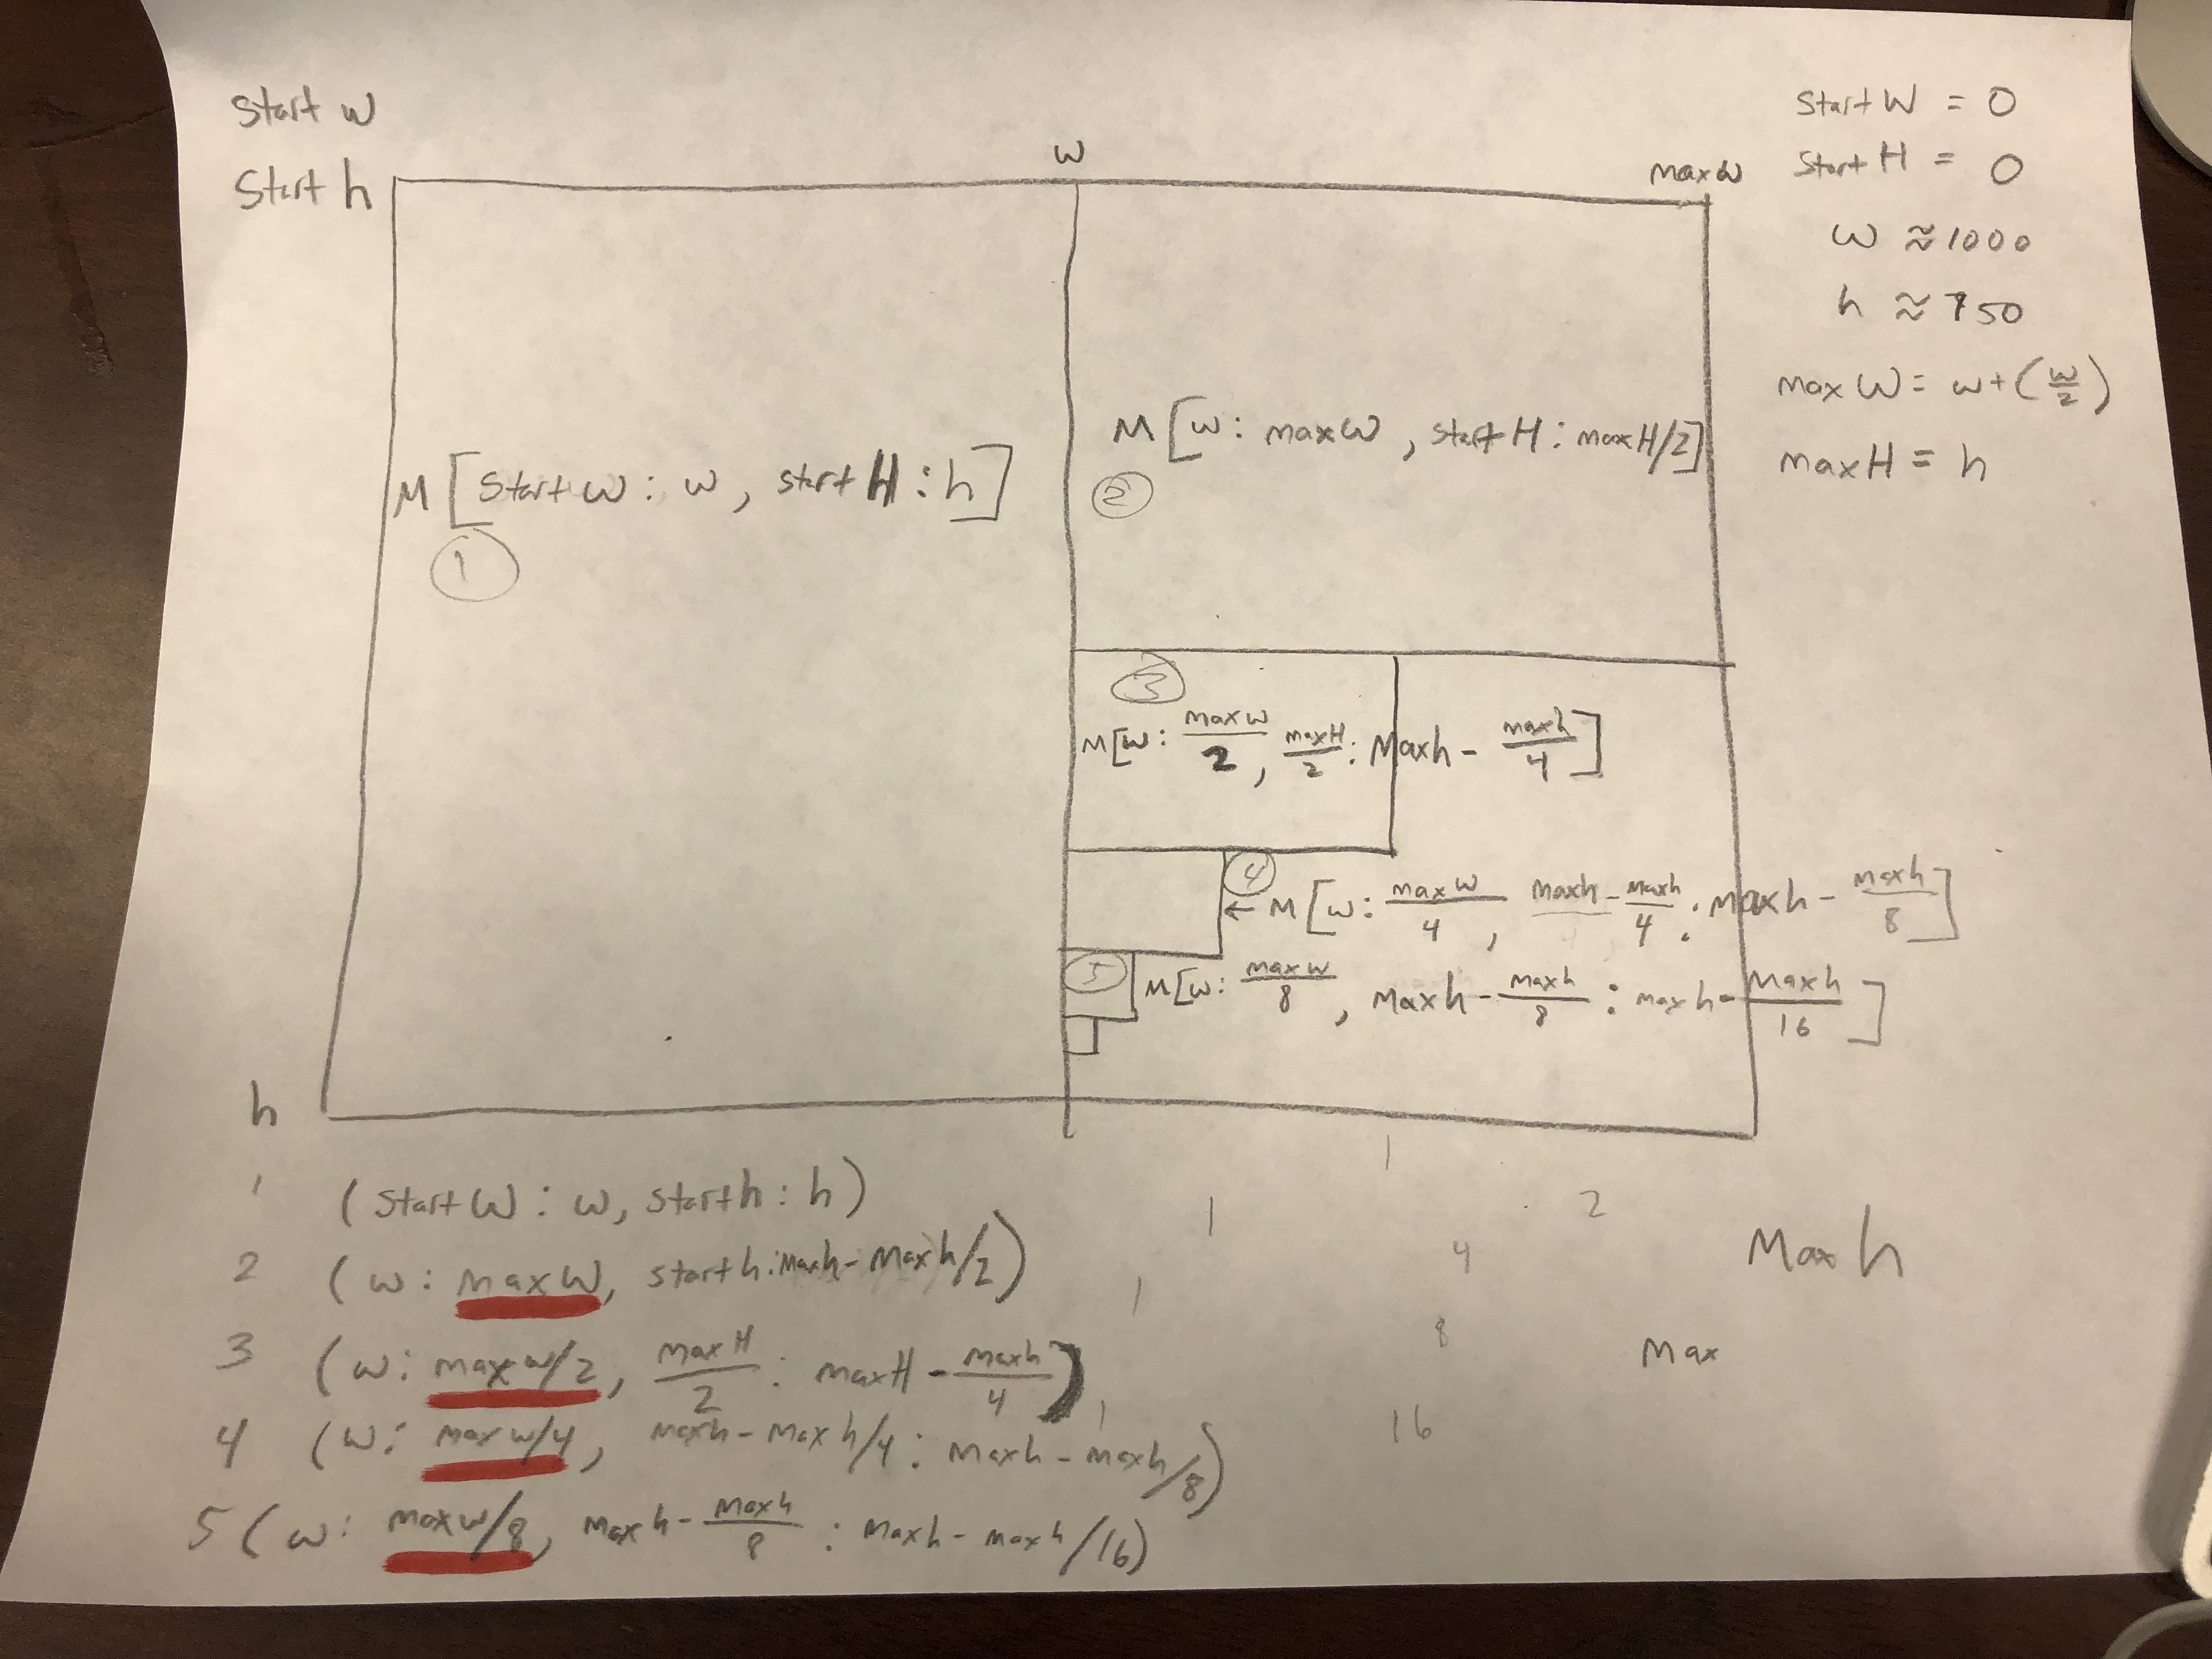 Start w
Start h
w
max w
Start W = 0
Start H = 0
w ≈ 1000
h ≈ 750
max W = w + (w/2)
max H = h
M [Start w : w, start H : h]
1
M [w : max W, start H : max H/2]
2
3
M[w : max w/2, max H/2 : Max h - max h/4]
4
← M [w : max w/4, max h - max h/4 : max h - max h/8]
5
M[w : max w/8, Max h - max h/8 : max h - Max h/16]
h
1 (Start W : w, start h : h)
2 (w : max W, start h : Max h - Max h/2)
3 (w : max w/2, max H/2 : max H - max h/4)
4 (w : max w/4, max h - max h/4 : max h - max h/8)
5 (w : max w/8, max h - max h/8 : max h - max h/16)
1
1 2
4 Max h
1
8 Max
1 16